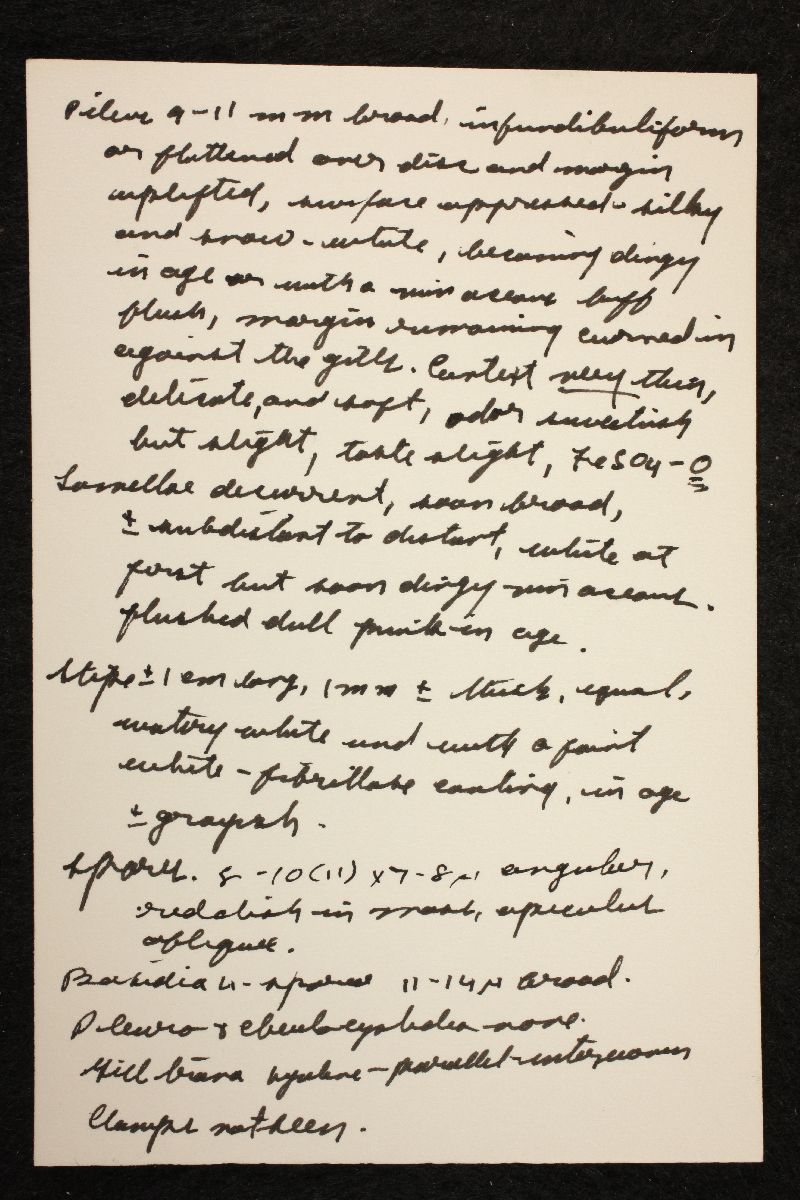 Pileus 9-11 mm broad, infundibuliform
or flattened over disc and margin
uplifted, surface appressed-silky
and snow-white, becoming dingy
in age or with a vinaceous buff
flush, margin remaining curved in
against the gills. Context very thin,
delicate, and soft, odor sweetish
but slight, taste slight, FeSO4-O
Lamellae decurrent, soon broad,
± subdistant to distant, white at
first but soon dingy-vinaceous.
flushed dull pink in age.
Stipe ± 1 cm long, 1 mm ± thick, equal,
watery white and with a faint
white-fibrillose coating, in age
± grayish.
Spores. 8-10(11) x 7-8 µ angular,
reddish in mass, apiculus
oblique.
Basidia 4-spored 11-14 µ broad.
Pleuro & cheilocystidia none.
Gill trama hyaline-parallel-interwoven
Clamps not seen.